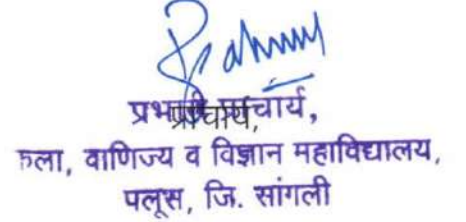 प्रभारी प्राचार्य,
प्राचार्य,
कला, वाणिज्य व विज्ञान महाविद्यालय,
पलूस, जि. सांगली